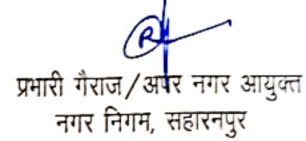 प्रभारी गैराज/अपर नगर आयुक्त
नगर निगम, सहारनपुर